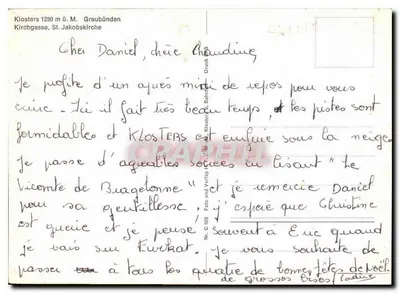 Klosters 1250 m ü. M. Graubünden
Kirchgasse, St. Jakobskirche
Cher Daniel, chère Claudine,
Je profite d'un après midi de repos pour vous
écrire - Ici il fait très beau temps, et les pistes sont
formidables et KLOSTERS est enfouie sous la neige
Je passe d'agréables soirées en lisant "Le
Vicomte de Bragelonne" et je remercie Daniel
pour sa gentillesse. j'espère que Christine
est guérie et je pense souvent à Eric quand
je vais sur Eurekat. Je vous souhaite de
passer à tous les quatre de bonnes fêtes de Noël
de grosses bises